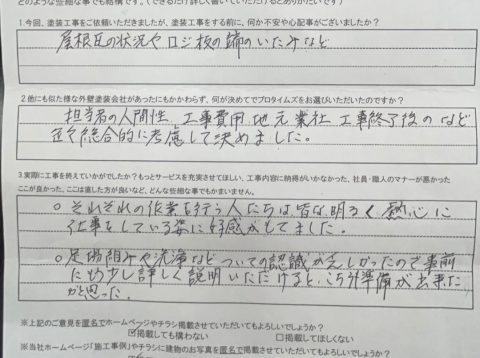 どのような些細な事でも結構です。(できるだけ詳しく書いていただけるとありがたいです)
1.今回、塗装工事をご依頼いただきましたが、塗装工事をする前に、何か不安や心配事がございましたか？
屋根瓦の状況やロジ板の錆のいたみなど
2.他にも似た様な外壁塗装会社があったにもかかわらず、何が決めてでプロタイムズをお選びいただいたのですか？
担当者の人間性、工事費用、地元業社、工事終了後のなど
色々総合的に考慮して決めました。
3.実際に工事を終えていかがでしたか？もっとサービスを充実させてほしい、工事内容に納得がいかなかった、社員・職人のマナーが悪かった
ここが良かった、ここは直した方が良いなど、どんな些細な事でもかまいません。
○それぞれの作業を行う人たちは、皆な明るく、熱心に
仕事をしている姿に好感がもてました。
○足場組みや洗浄などついての認識が乏しかったので事前
にもう少し詳しく説明いただけると、こちらも準備が出来た
かと思った。
※上記のご意見を匿名でホームページやチラシ掲載させていただいてもよろしいでしょうか？
☑掲載しても構わない　□掲載してほしくない
※当社ホームページ「施工事例」やチラシに建物のお写真を匿名で掲載させていただいてもよろしいでしょうか？